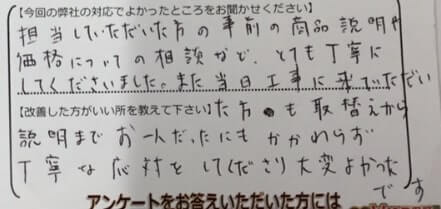 【今回の弊社の対応でよかったところをお聞かせください】
担当していただいた方の事前の商品説明や
価格についての相談など、とても丁寧に
してくださいました。また当日工事に来ていただい
【改善した方がいい所を教えて下さい】た方も取替えから
説明までお一人だったにもかかわらず
丁寧な応対をしてくださり大変よかった
です
アンケートをお答えいただいた方には